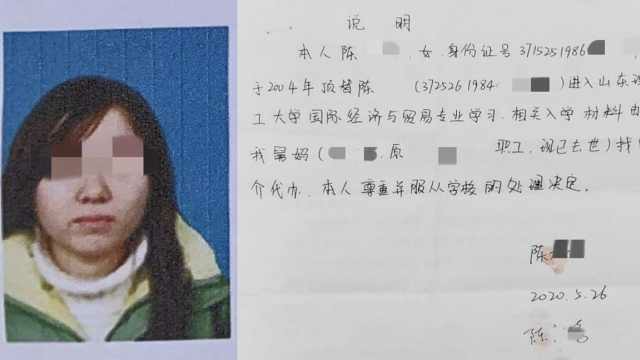 说 明
本人陈 女,身份证号371525 1986
于2004年顶替陈 (372526 1984 )进入山东理
工大学国际经济与贸易专业学习.相关入学材料由
我舅妈( .原 职工,现已去世)找
介代办.本人尊重并服从学校的处理决定。
陈
2020.5.26
陈